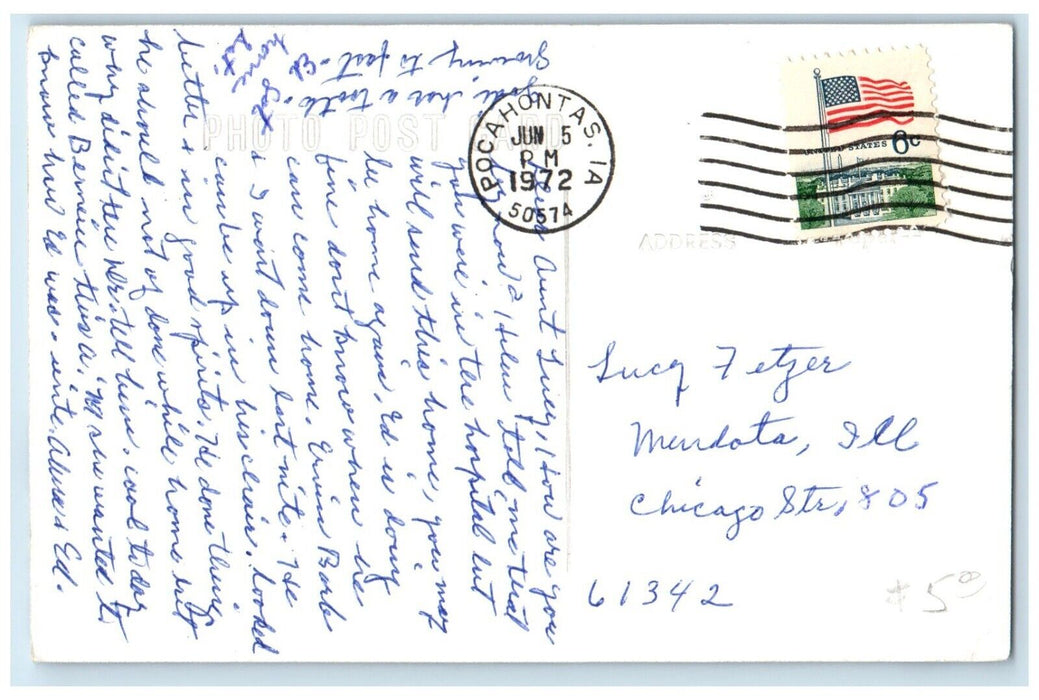 PHOTO POST CARD
POCAHONTAS, IA
JUN 5
PM
1972
50574
UNITED STATES 6c
ADDRESS
Dear Aunt Lucy, How are you
by now? Helen told me that
you were in the hospital but
will send this home, you may
be home again. Ed is doing
fine don't know when he
can come home. Ervin Barb
& I went down last nite. He
can be up in his chair. looked
better & in good spirits. He done things
he should not of done while home but
why didn't the Dr. tell him. cool today
called Bernice this a.m. she wanted to
know how Ed was. write. Alma & Ed.
Jodi has a tooth.
Growing to fast.
Lucy Fetzer
Mendota, Ill
Chicago Str, 805
61342
$5.00